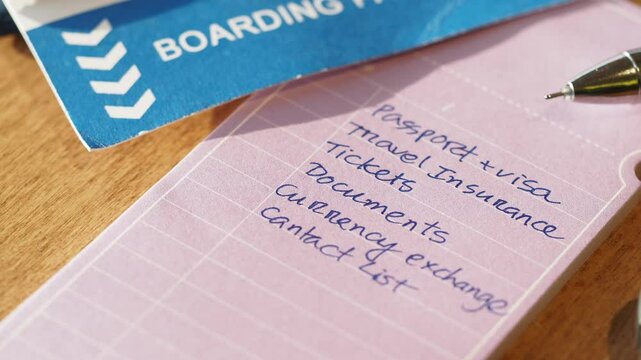 BOARDING
Passport + visa
Travel Insurance
Tickets
Documents
Currency exchange
Cantact List